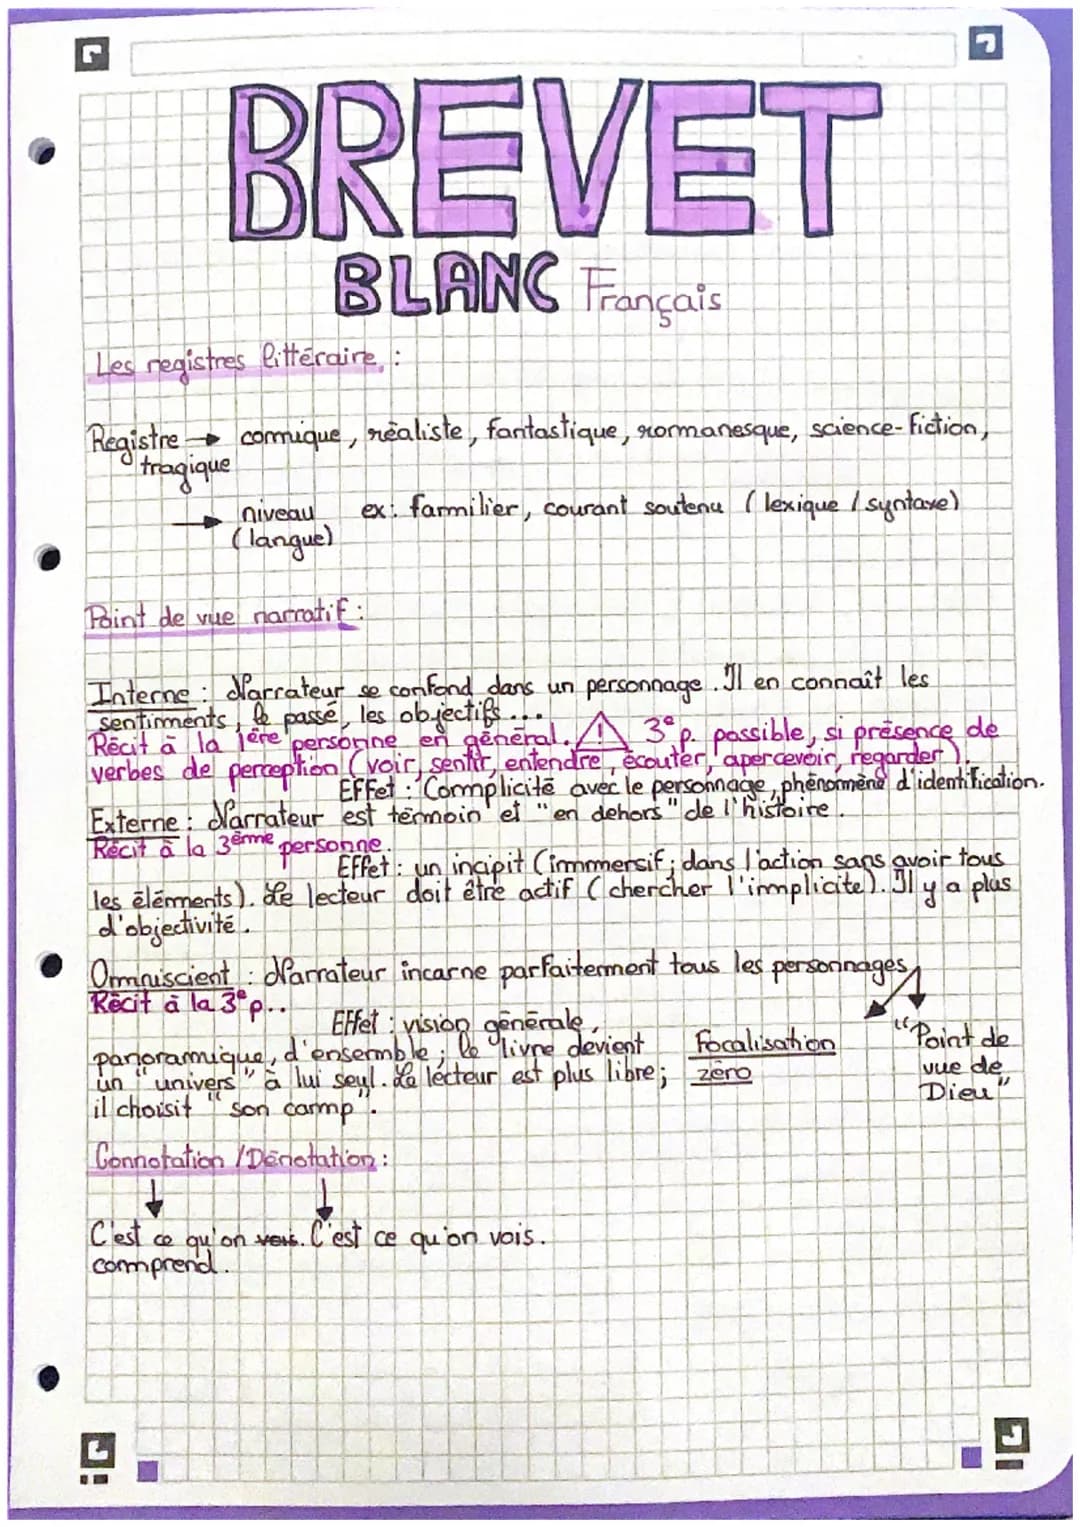 BREVET
BLANC Français
Les registres littéraire :
Registre → comique, réaliste, fantastique, romanesque, science-fiction,
tragique
→ niveau ex: familier, courant soutenu (lexique / syntaxe)
(langue)
Point de vue narratif :
Interne : Narrateur se confond dans un personnage. Il en connaît les
sentiments, le passé, les objectifs...
Récit à la 1ère personne en général. ⚠ 3e p. possible, si présence de
verbes de perception (voir, sentir, entendre, écouter, apercevoir, regarder).
Effet : Complicité avec le personnage, phénomène d'identification.
Externe : Narrateur est témoin et "en dehors" de l'histoire.
Récit à la 3ème personne.
Effet : un incipit (immersif ; dans l'action sans avoir tous
les éléments). Le lecteur doit être actif (chercher l'implicite). Il y a plus
d'objectivité.
Omniscient : Narrateur incarne parfaitement tous les personnages
Récit à la 3e p...
Effet : vision générale,
panoramique, d'ensemble ; le livre devient
un "univers" à lui seul. Le lecteur est plus libre ;
il choisit "son camp".
Focalisation
zéro
"Point de
vue de
Dieu"
Connotation / Dénotation :
C'est ce qu'on vois. C'est ce qu'on vois.
comprend.